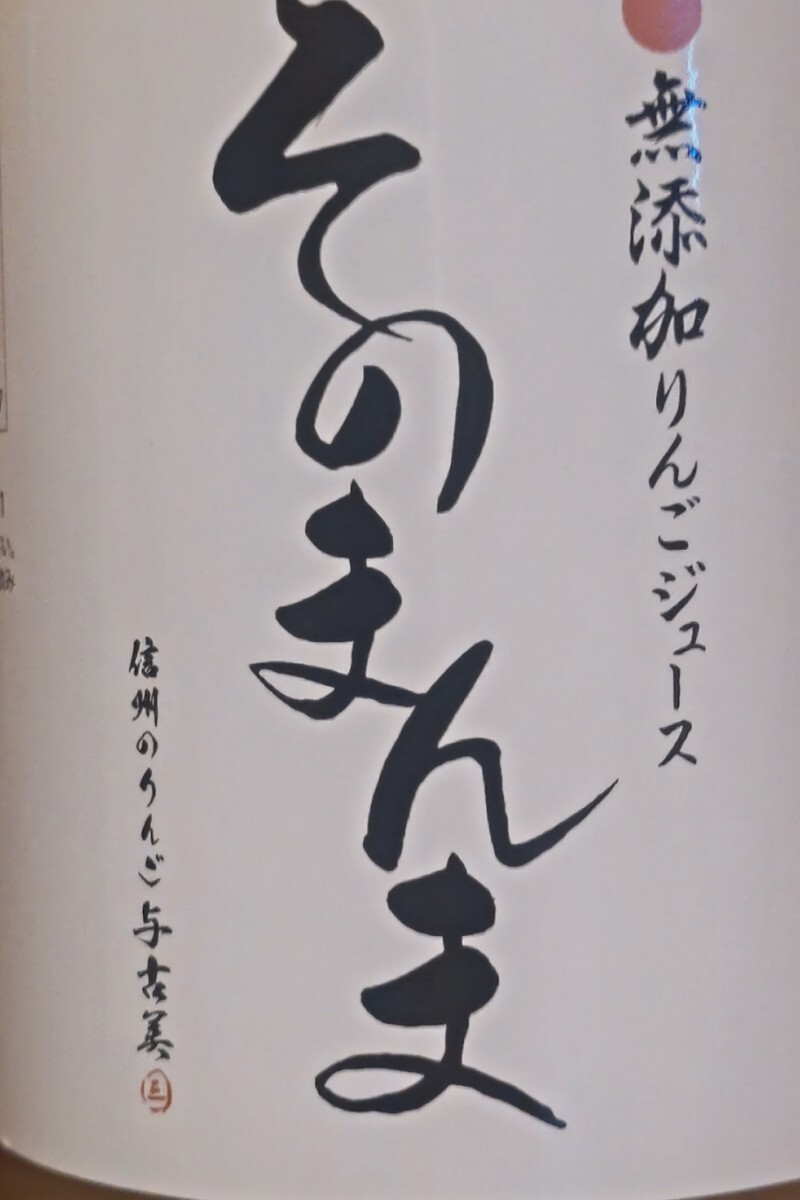 無添加りんごジュース
そのまんま
信州のりんご 与古美